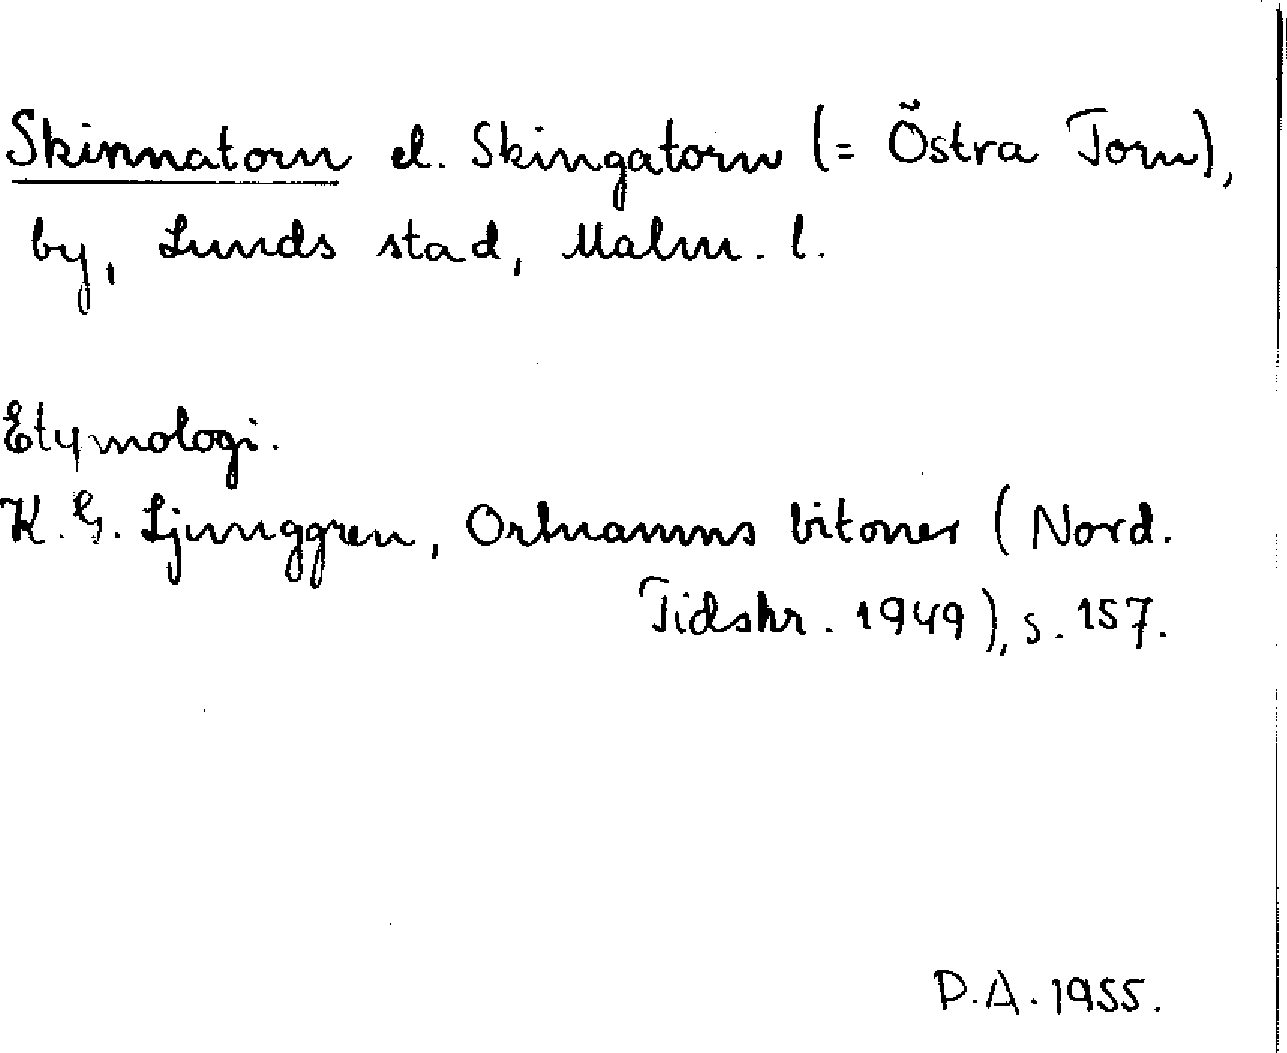 Skinnatorn el. Skingatorn (= Östra Torn),
by, Lunds stad, Malm. l.
Etymologi.
K. G. Ljunggren, Ortnamns bitoner (Nord.
Tidskr. 1949), s. 157.
D.A. 1955.